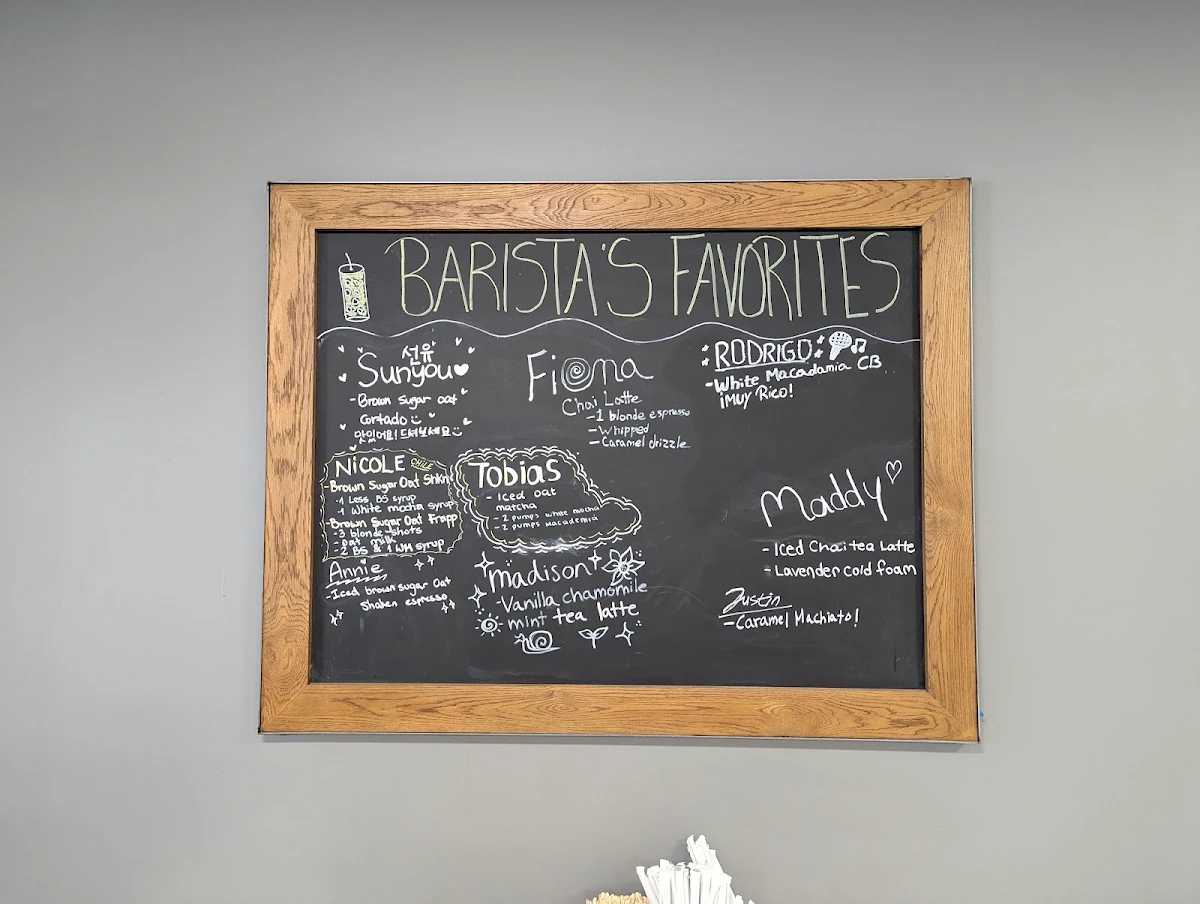 BARISTA'S FAVORITES
선유
Sunyou
- Brown Sugar oat
Cortado
맛있어요! 드셔보세요
Fiona
Chai Latte
- 1 blonde espresso
- Whipped
- Caramel drizzle
RODRIGO
- White Macadamia CB
¡Muy Rico!
NICOLE
- Brown Sugar Oat Shkn
· 1 Less BS syrup
· 1 White mocha syrup
- Brown Sugar Oat Frapp
- 3 blonde shots
- oat milk
- 2 BS & 1 WM syrup
Tobias
- Iced oat
matcha
- 2 pumps white mocha
- 2 pumps Macademia
Maddy
- Iced Chai tea Latte
- Lavender cold foam
Annie
- Iced brown sugar Oat
Shaken espresso
madison
- Vanilla chamomile
mint tea latte
Justin
- Caramel Machiato!